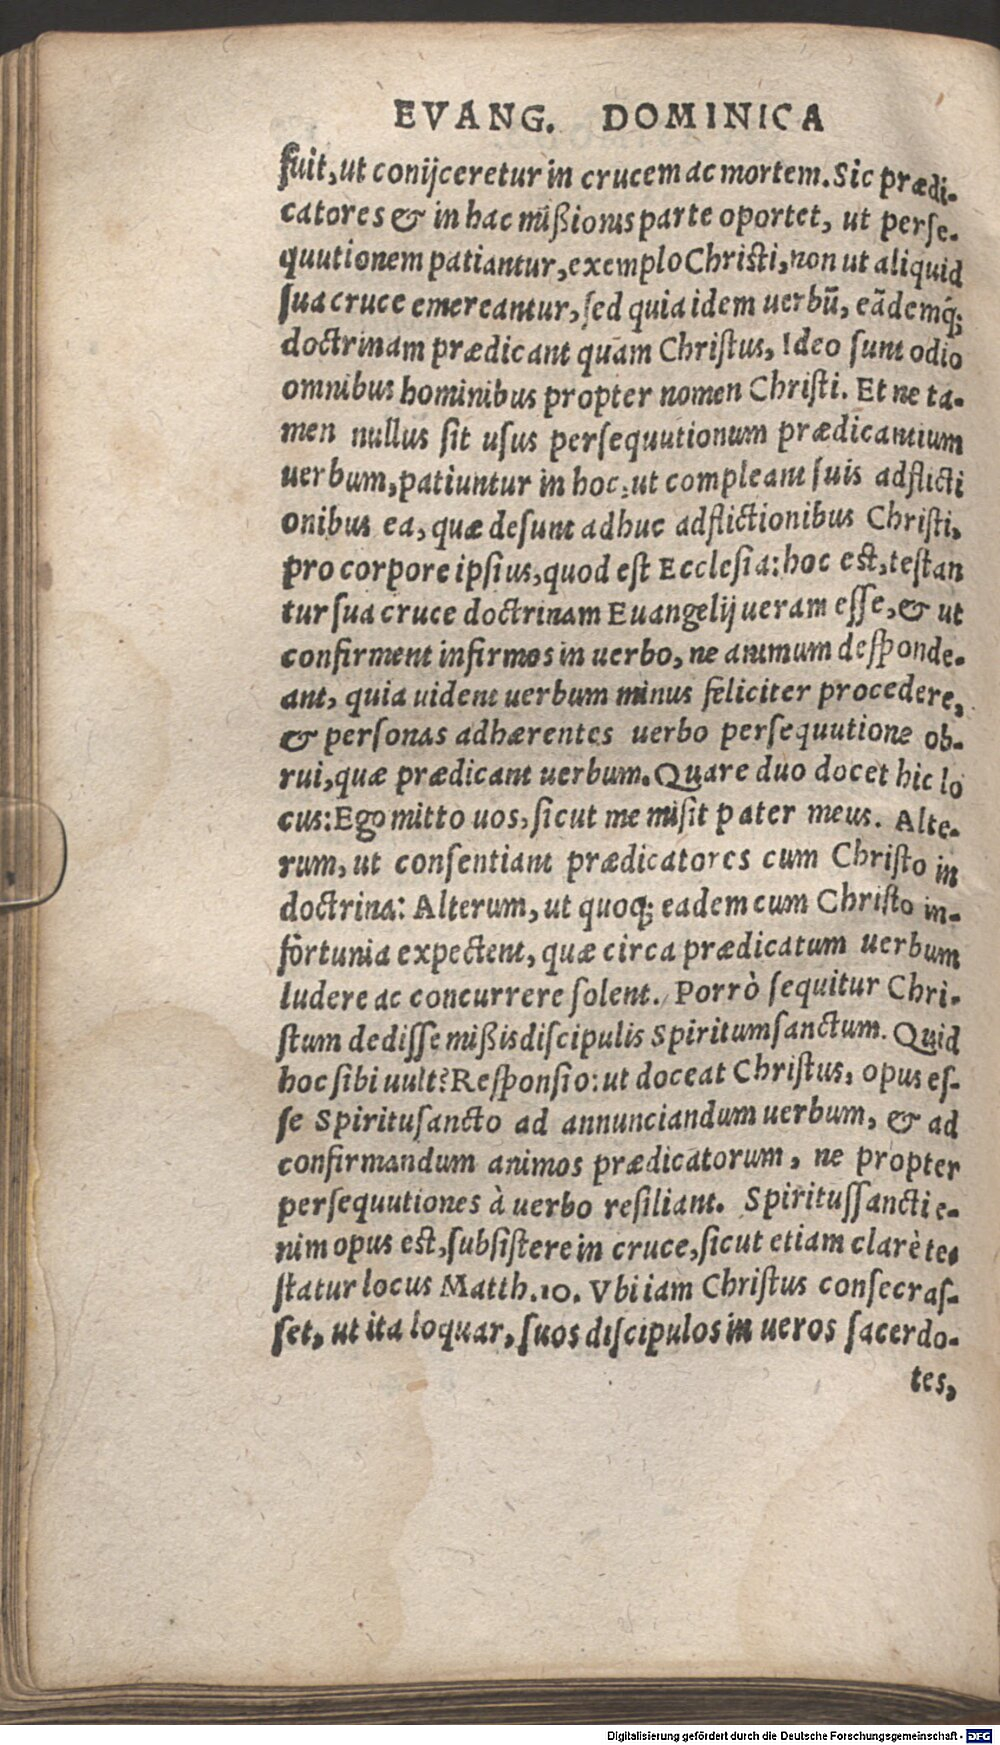 EVANG. DOMINICA
fuit, ut conijceretur in crucem ac mortem. Sic prædi-
catores & in hac mißionis parte oportet, ut perse-
quutionem patiantur, exemplo Christi, non ut aliquid
sua cruce emereantur, sed quia idem uerbū, eādemq́;
doctrinam prædicant quàm Christus, Ideo sunt odio
omnibus hominibus propter nomen Christi. Et ne ta-
men nullus sit usus persequutionum prædicantium
uerbum, patiuntur in hoc, ut compleant suis adflicti
onibus ea, quæ desunt adhuc adflictionibus Christi,
pro corpore ipsius, quod est Ecclesia: hoc est, testan
tur sua cruce doctrinam Euangelij ueram esse, & ut
confirment infirmos in uerbo, ne animum desponde-
ant, quia uident uerbum minus feliciter procedere,
& personas adhærentes uerbo persequutione ob-
rui, quæ prædicant uerbum. Quare duo docet hic lo
cus: Ego mitto uos, sicut me misit pater meus. Alte-
rum, ut consentiant prædicatores cum Christo in
doctrina: Alterum, ut quoq; eadem cum Christo in-
fortunia expectent, quæ circa prædicatum uerbum
ludere ac concurrere solent. Porrò sequitur Chri-
stum dedisse mißis discipulis Spiritumsanctum. Quid
hoc sibi uult? Responsio: ut doceat Christus, opus es-
se Spiritusancto ad annunciandum uerbum, & ad
confirmandum animos prædicatorum, ne propter
persequutiones à uerbo resiliant. Spiritussancti e-
nim opus est, subsistere in cruce, sicut etiam clarè te-
statur locus Matth. 10. Vbi iam Christus consecras-
set, ut ita loquar, suos discipulos in ueros sacerdo-
tes,
Digitalisierung gefördert durch die Deutsche Forschungsgemeinschaft - DFG